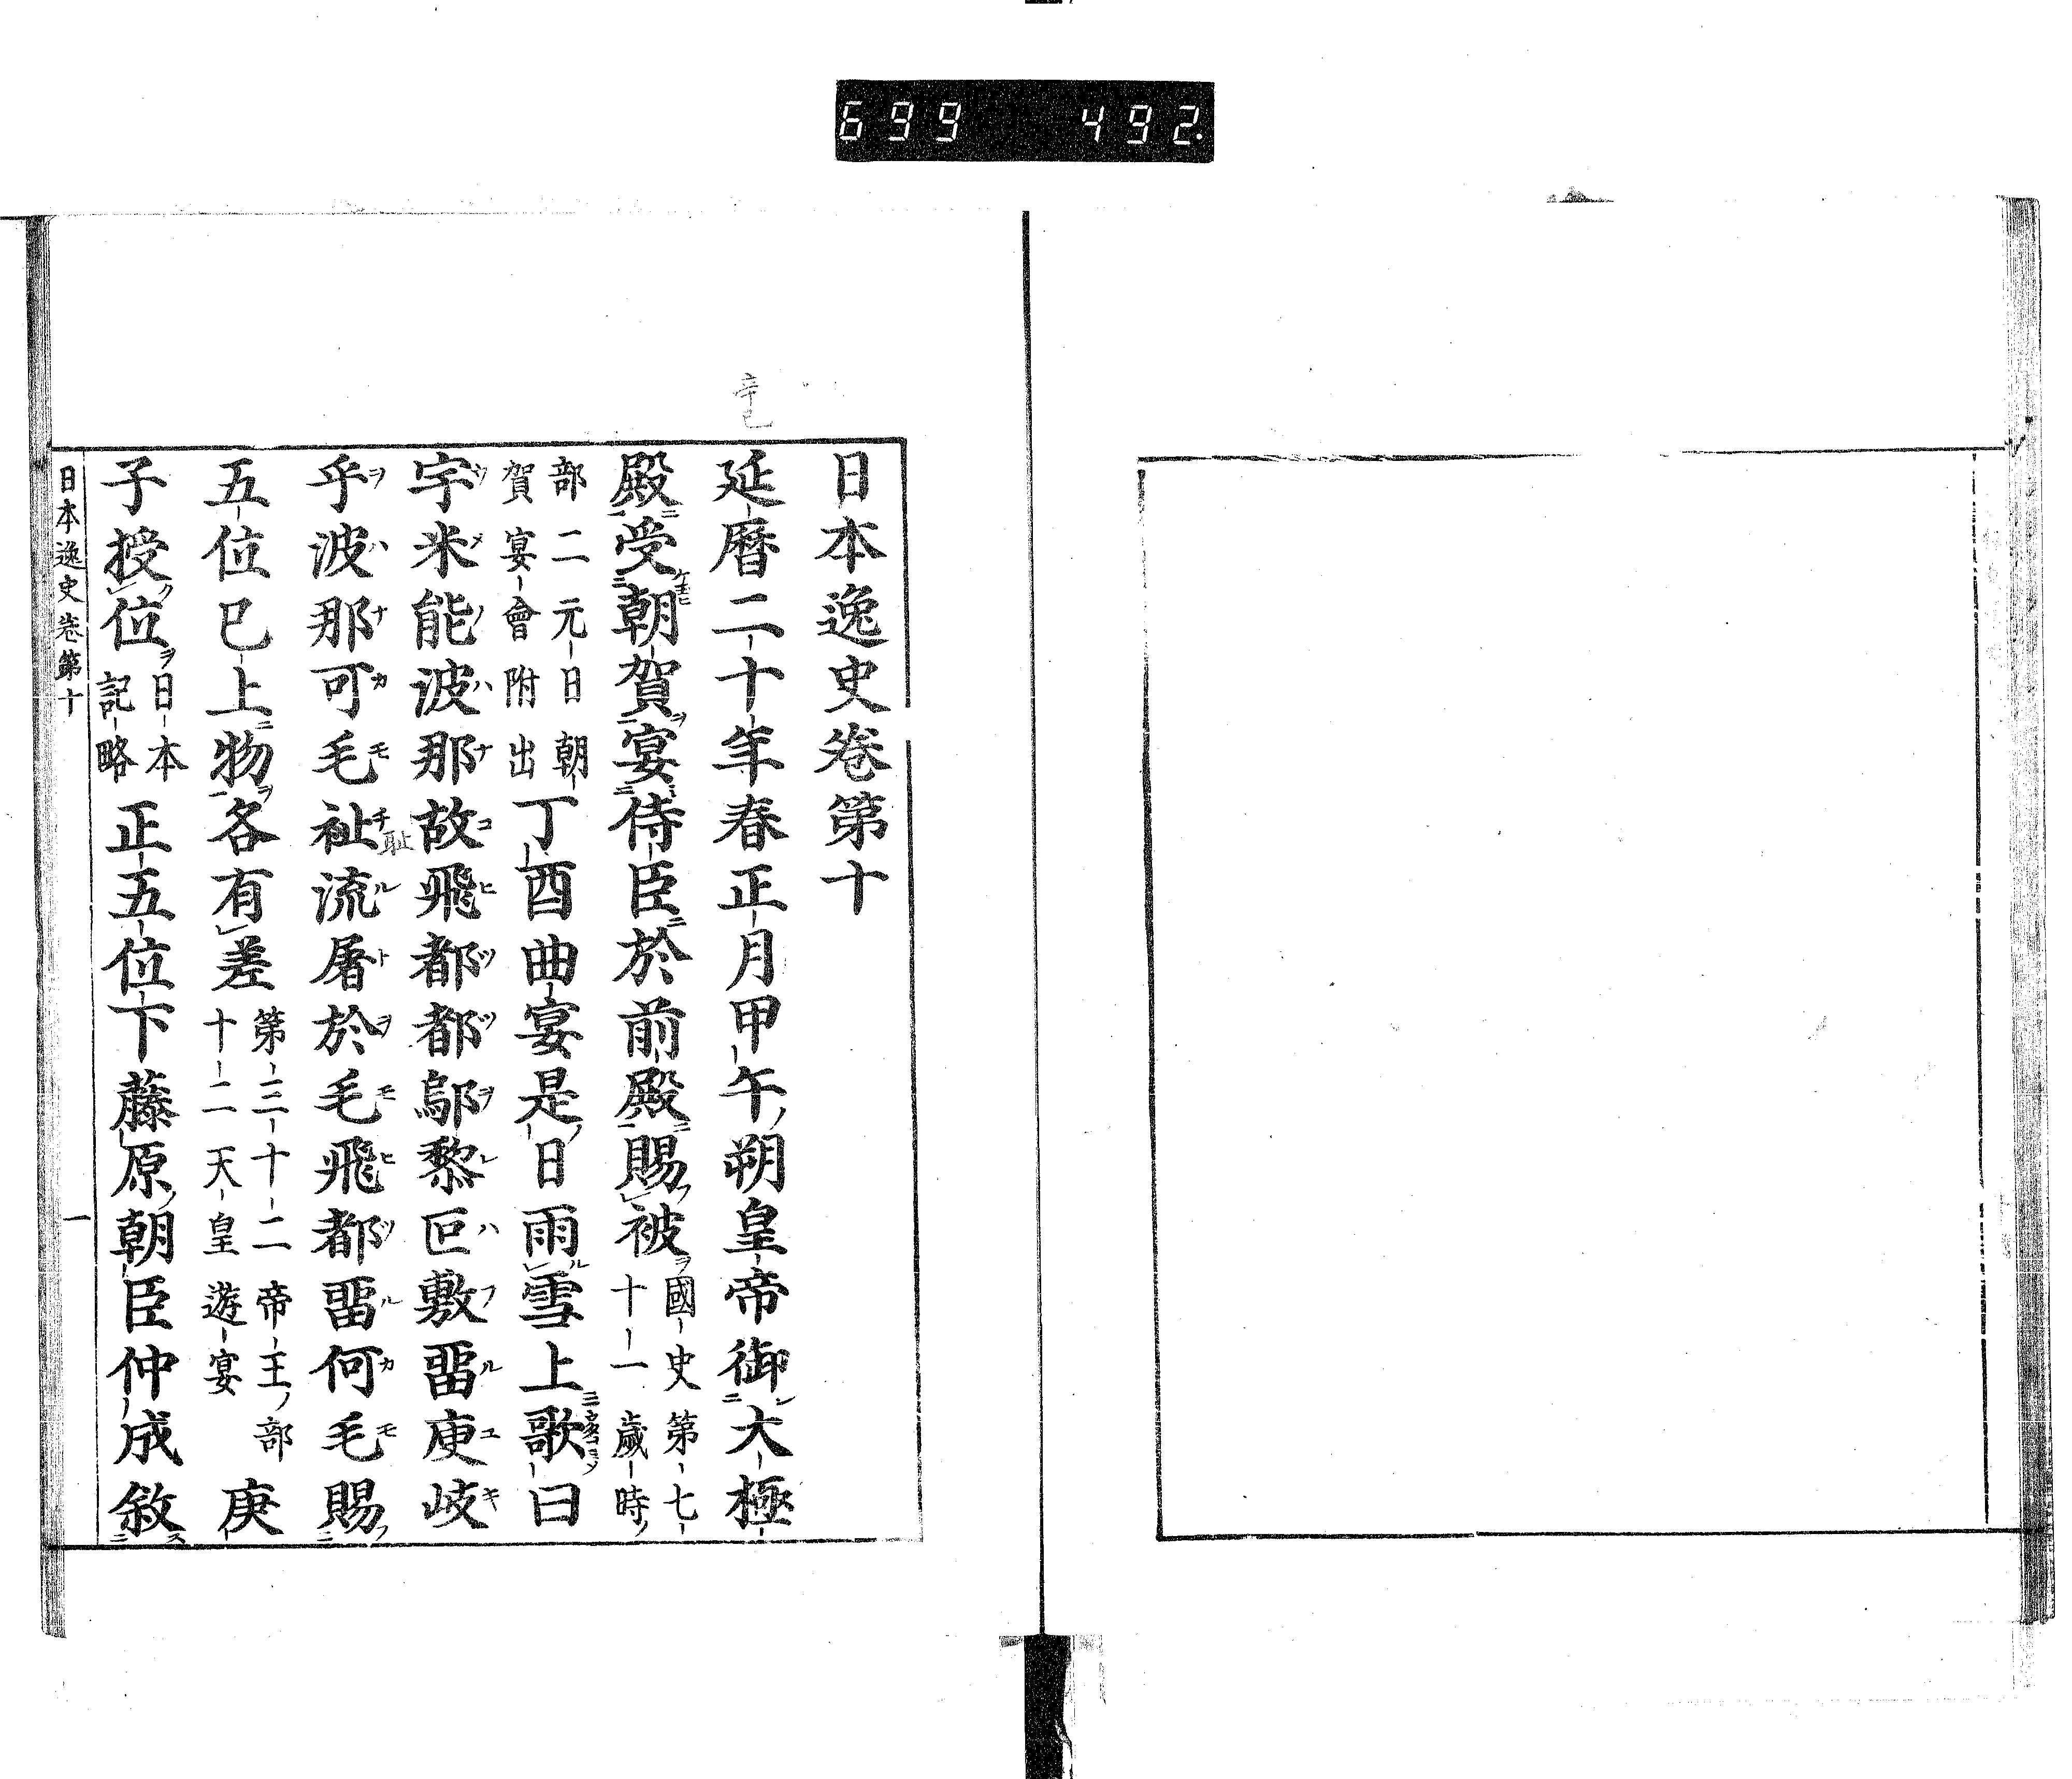 699 492.
辛巳
日本逸史卷第十
延曆二十年春正月甲午朔皇帝御大極
殿受朝賀宴侍臣於前殿賜被國史第七十一歲時
部二元日朝賀宴會附出丁酉曲宴是日雨雪上歌曰
宇米能波那故飛都都鄔黎叵敷畱庾岐
乎波那可毛祉流屠於毛飛都畱何毛賜
耻
五位已上物各有差第三十二帝王部十二天皇遊宴庚
子授位日本記略正五位下藤原朝臣仲成敘
日本逸史卷第十 一